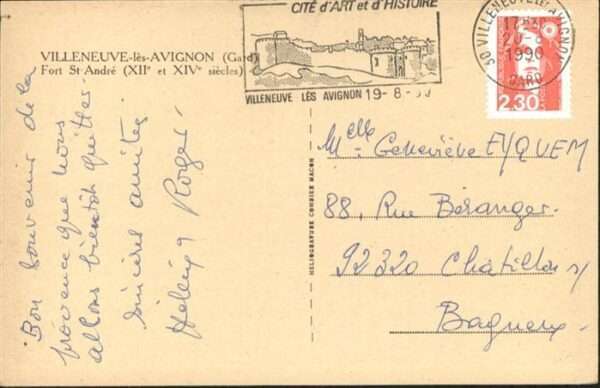 CITÉ d'ART et d'HISTOIRE
VILLENEUVE LÈS AVIGNON 19-8-90
30 VILLENEUVE LES AVIGNON
1990
GARD
2,30
VILLENEUVE-lès-AVIGNON (Gard)
Fort St-André (XIIe et XIVe siècles)
Bon souvenir de la
provence que nous
allons bientôt quitter.
sincères amitiés
Roger.
HELIOGRAVURE COMBIER MACON
Melle Geneviève EYQUEM
88, Rue Béranger.
92320 Châtillon s/
Bagneux